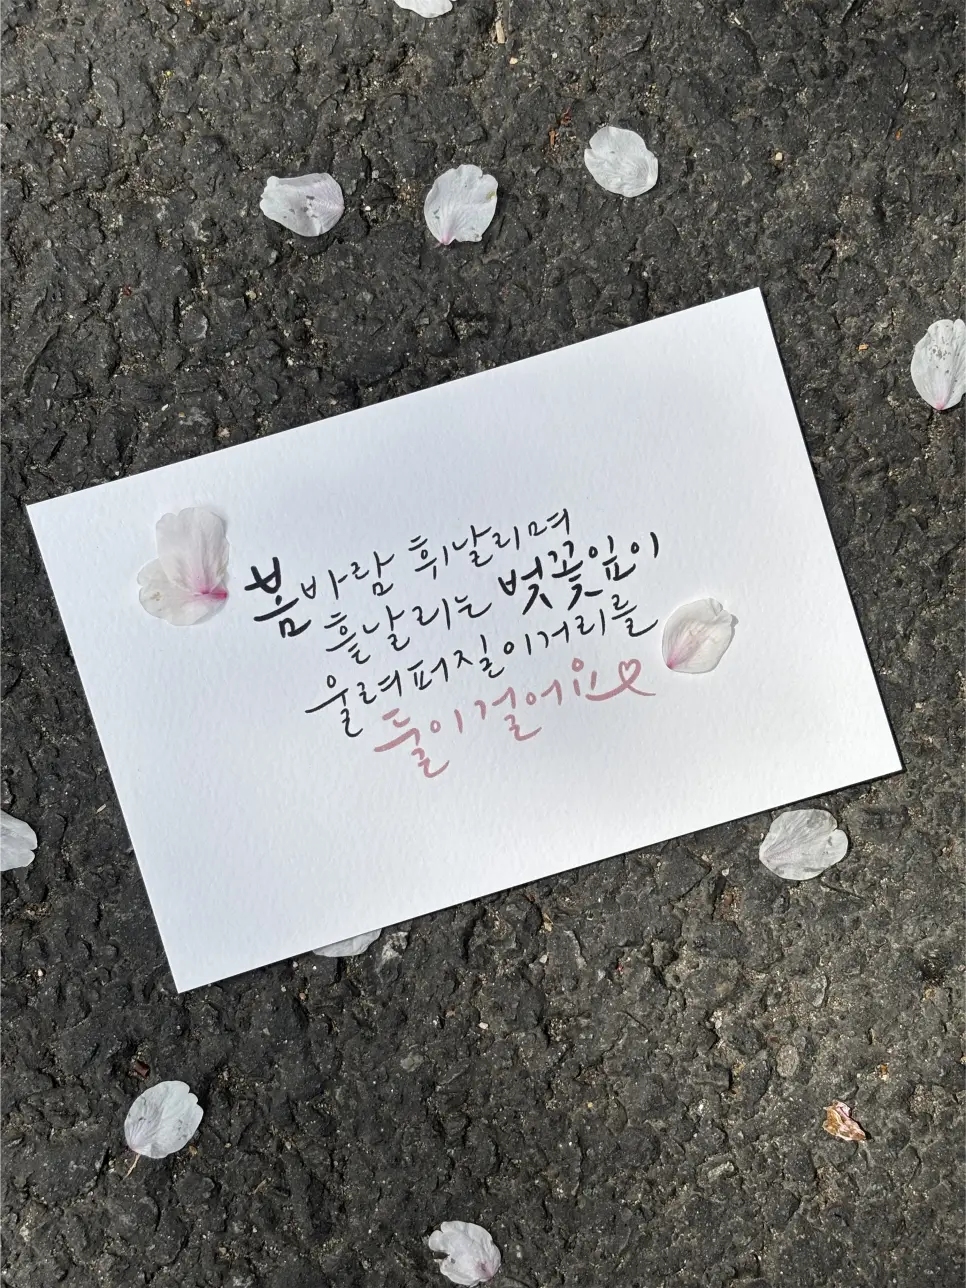 봄바람 휘날리며
흩날리는 벚꽃잎이
울려퍼질 이 거리를
둘이 걸어요♡